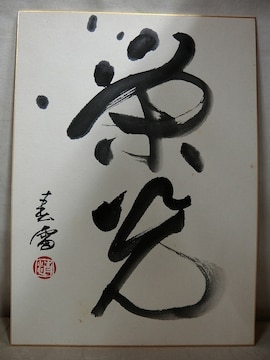 栄光
春雷